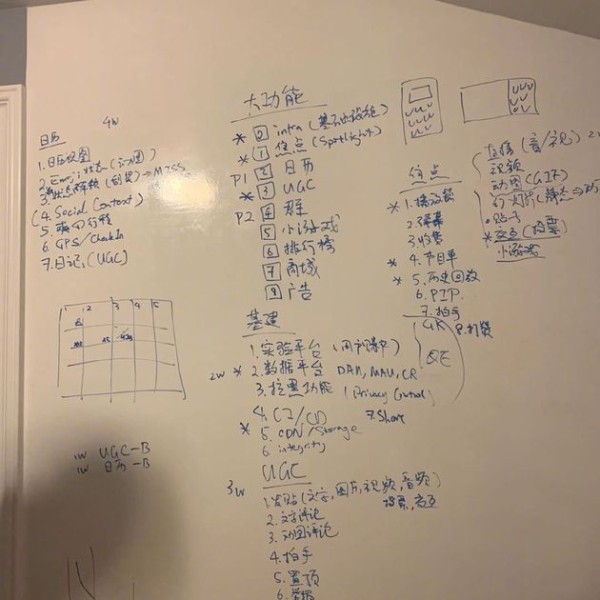 日历
4W
1. 日历视图
2. Emoji 状态 (动图)
3. 状态
4. Social Context)
5. 行程
6. GPS/CheckIn
7. 日记 (UGC)
1 2 3 4 5
1W UGC-B
1W 日历-B
大功能
* 0 infra (基本设施)
* 1 焦点 (Spotlight)
P1 2 日历
* 3 UGC
P2 4 群
5 小游戏
6 排行榜
7 商城
9 广告
基建
1. 实验平台 (用户)
2W * 2. 数据平台 DAU, MAU, CR
3. 拉黑功能 (Privacy Control)
4. CI/CD
7. Share
* 5. CDN/Storage
6 integrity
GK
QE
UGC
3W
1. 发贴 (文字, 图片, 视频, 音频)
投票
2. 文字评论
3. 动图评论
4. 拍手
5. 置顶
6. 举报
焦点
* 1. 播放器
2. 弹幕
3 收费
* 4. 节目单
* 5. 历史回放
6. PIP
7. 拍手
8. 打赏
直播 (音/视)
视频
动图 (GIF)
幻灯片
贴子
* 交互 (投票)
小游戏